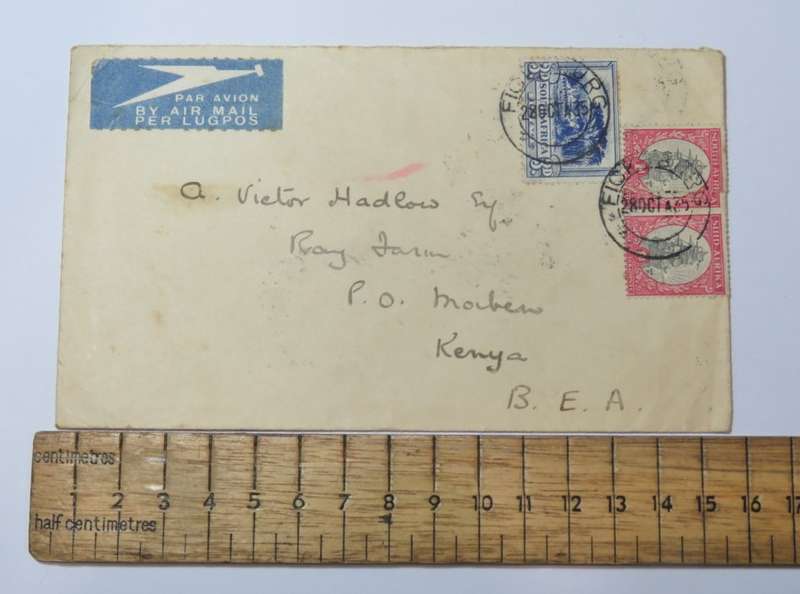 PAR AVION
BY AIR MAIL
PER LUGPOS
28 OCT
28 OCT
SOUTH AFRICA
SUID-AFRIKA
A. Victor Hadlow Esq.
Ray Farm
P.O. Moiben
Kenya
B. E. A.
centimetres
1 2 3 4 5 6 7 8 9 10 11 12 13 14 15 16 17
half centimetres